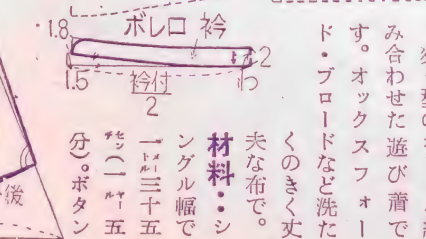 1.8
ボレロ 衿
2
わ
1.5
衿付
2
後
み合わせた遊び着で
す。オックスフォー
ド・ブロードなど洗た
くのきく丈
夫な布で。
材料：シ
ングル幅で
一メートル三十五
センチ(一ヤール五
分)。ボタン